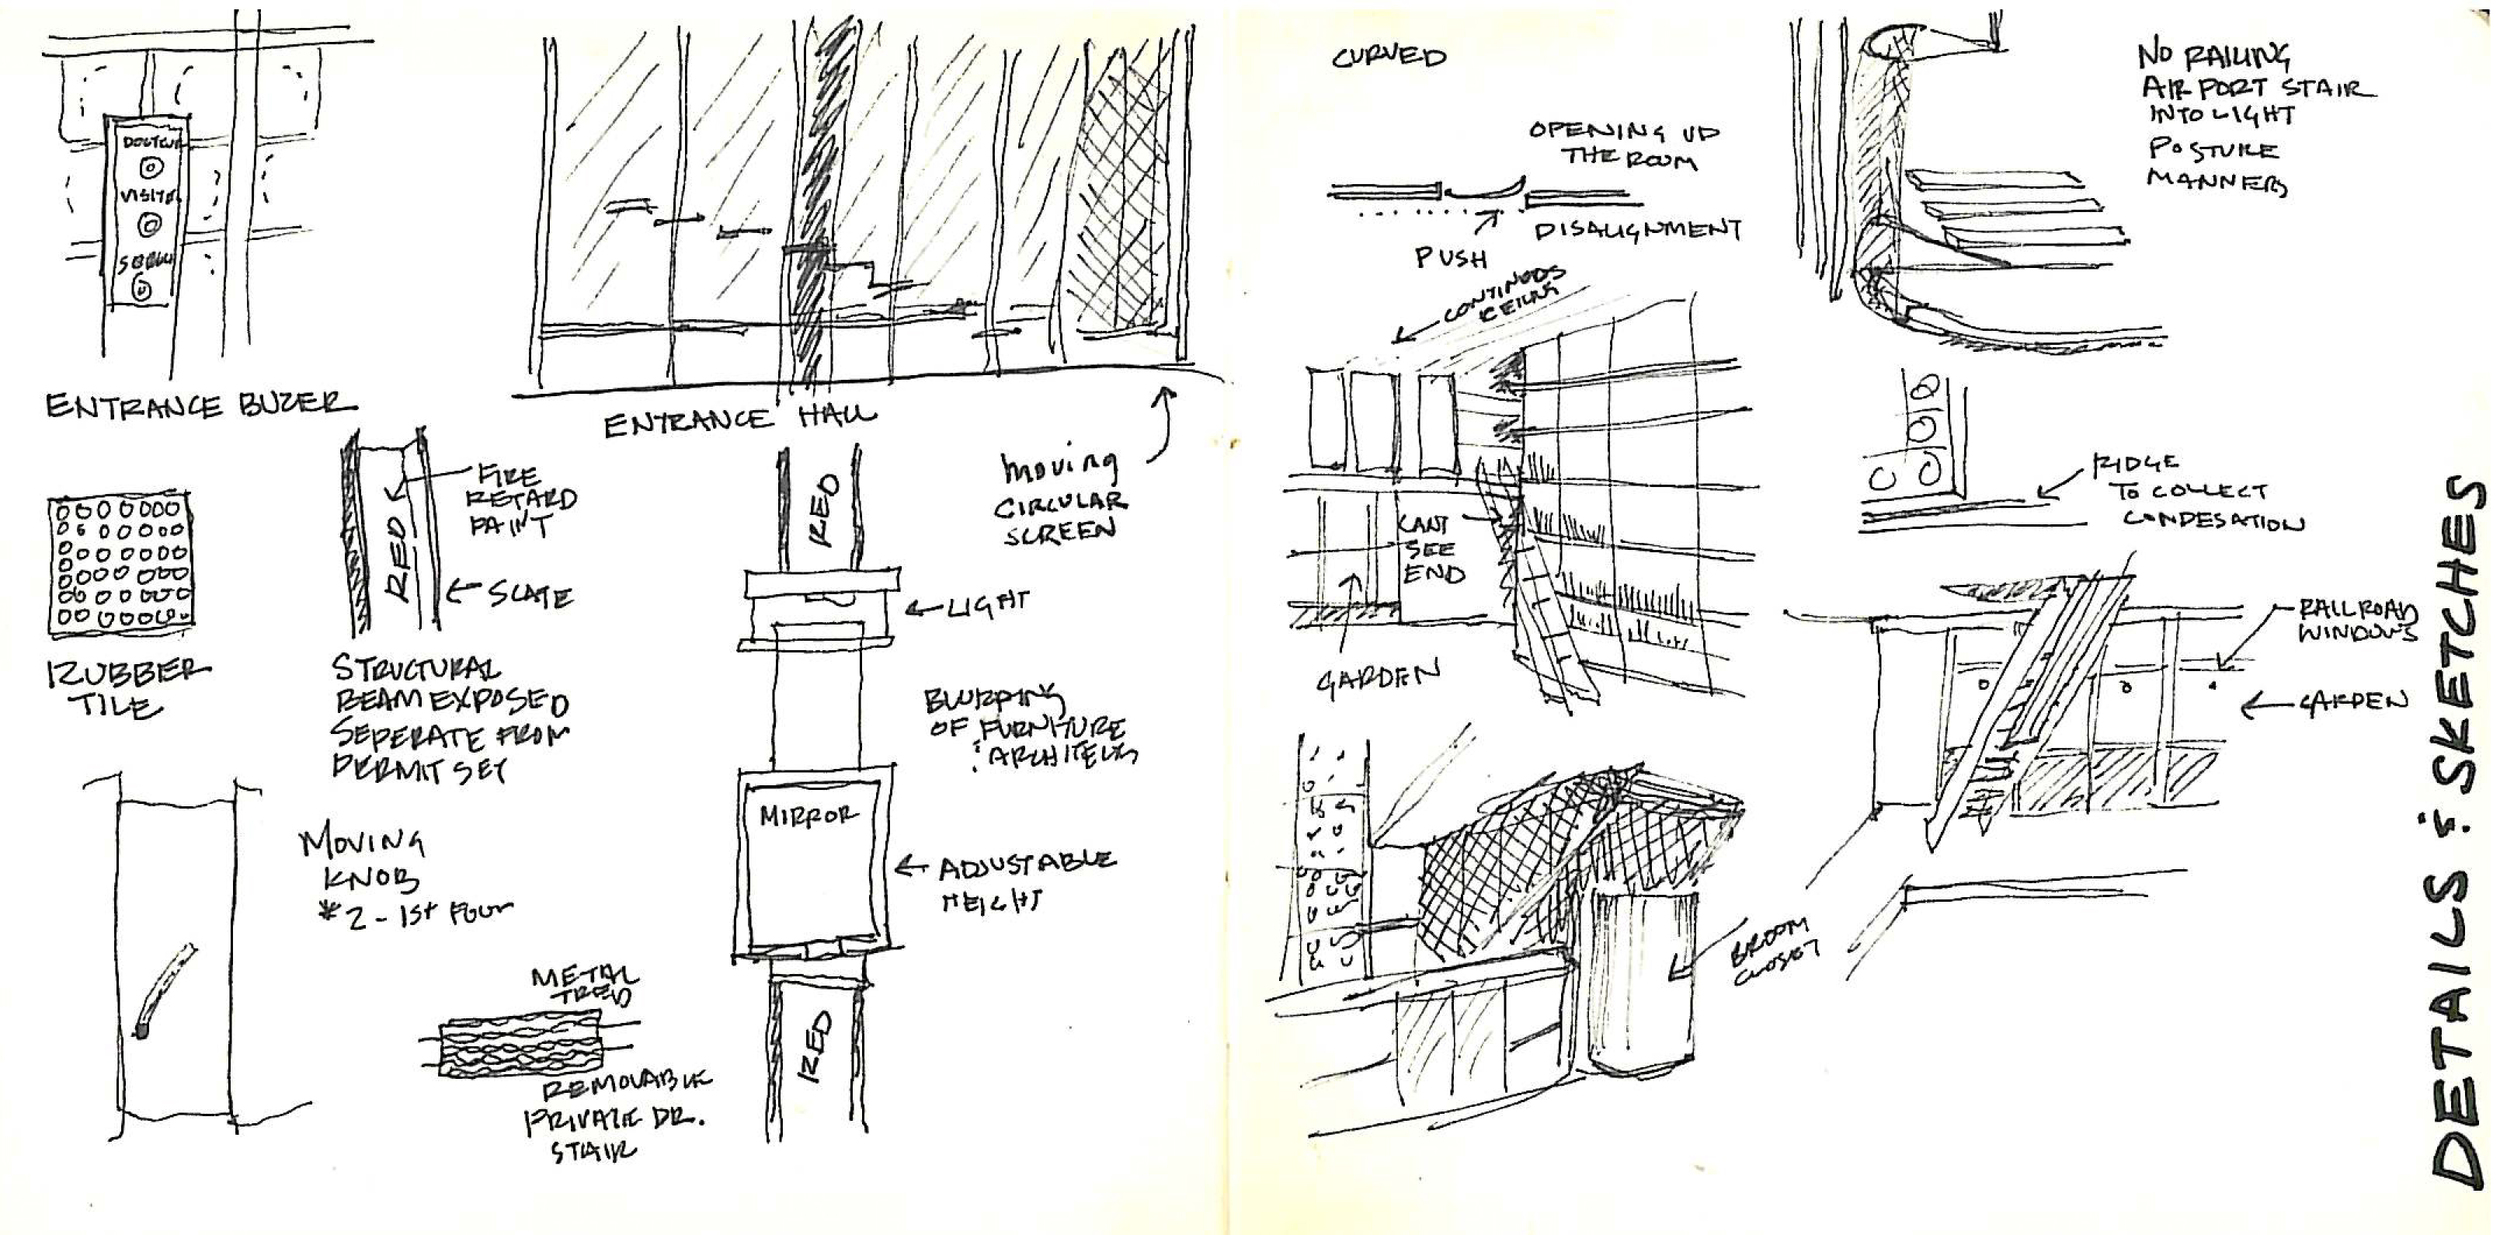 DOCTEUR
VISITE
ENTRANCE BUZER
ENTRANCE HALL
MOVING
CIRCULAR
SCREEN
RUBBER
TILE
FIRE
RETARD
PAINT
RED
SLATE
STRUCTURAL
BEAM EXPOSED
SEPERATE FROM
PERMIT SET
MOVING
KNOB
*2 - 1st FOUR
METAL
TRED
REMOVABLE
PRIVATE DR.
STAIR
RED
LIGHT
BLURRING
OF FURNITURE
MIRROR
ADJUSTABLE
HEIGHT
RED
CURVED
OPENING UP
THE ROOM
DISALIGNMENT
PUSH
CONTINUOS
CEILING
CANT
SEE
END
GARDEN
BROOM
CLOSET
NO RAILING
AIRPORT STAIR
INTO LIGHT
POSTURE
MANNERS
RIDGE
TO COLLECT
CONDESATION
RAILROAD
WINDOWS
GARDEN
DETAILS & SKETCHES